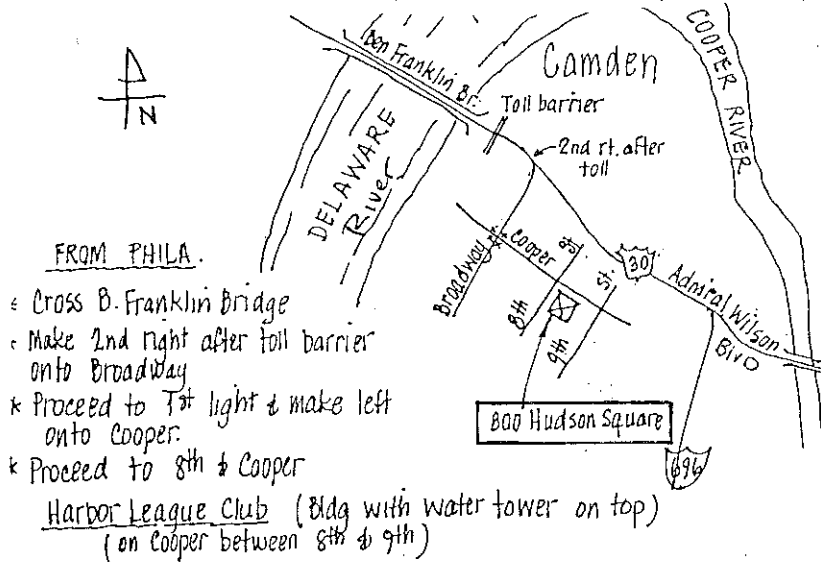 Ben Franklin Br.
Camden
COOPER RIVER
Toll barrier
2nd rt. after
toll
N
DELAWARE
River
Broadway
Cooper
8th
St.
9th
St.
30
Admiral Wilson
Blvd
800 Hudson Square
696
FROM PHILA.
Cross B. Franklin Bridge
Make 2nd right after toll barrier
onto Broadway
* Proceed to 1st light & make left
onto Cooper.
* Proceed to 8th & Cooper
Harbor League Club (Bldg with water tower on top)
(on Cooper between 8th & 9th)